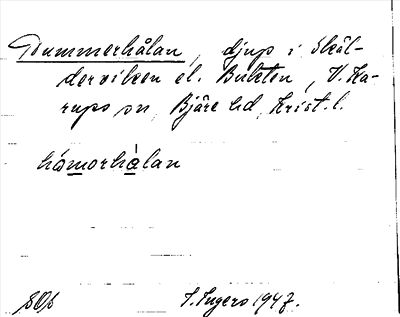 Hummerhålan, djup i Skäl-
derviken el. Bukten, V. Ka-
rups sn, Bjäre hd, Krist. l.
håmorhålan
S. Ingers 1947.